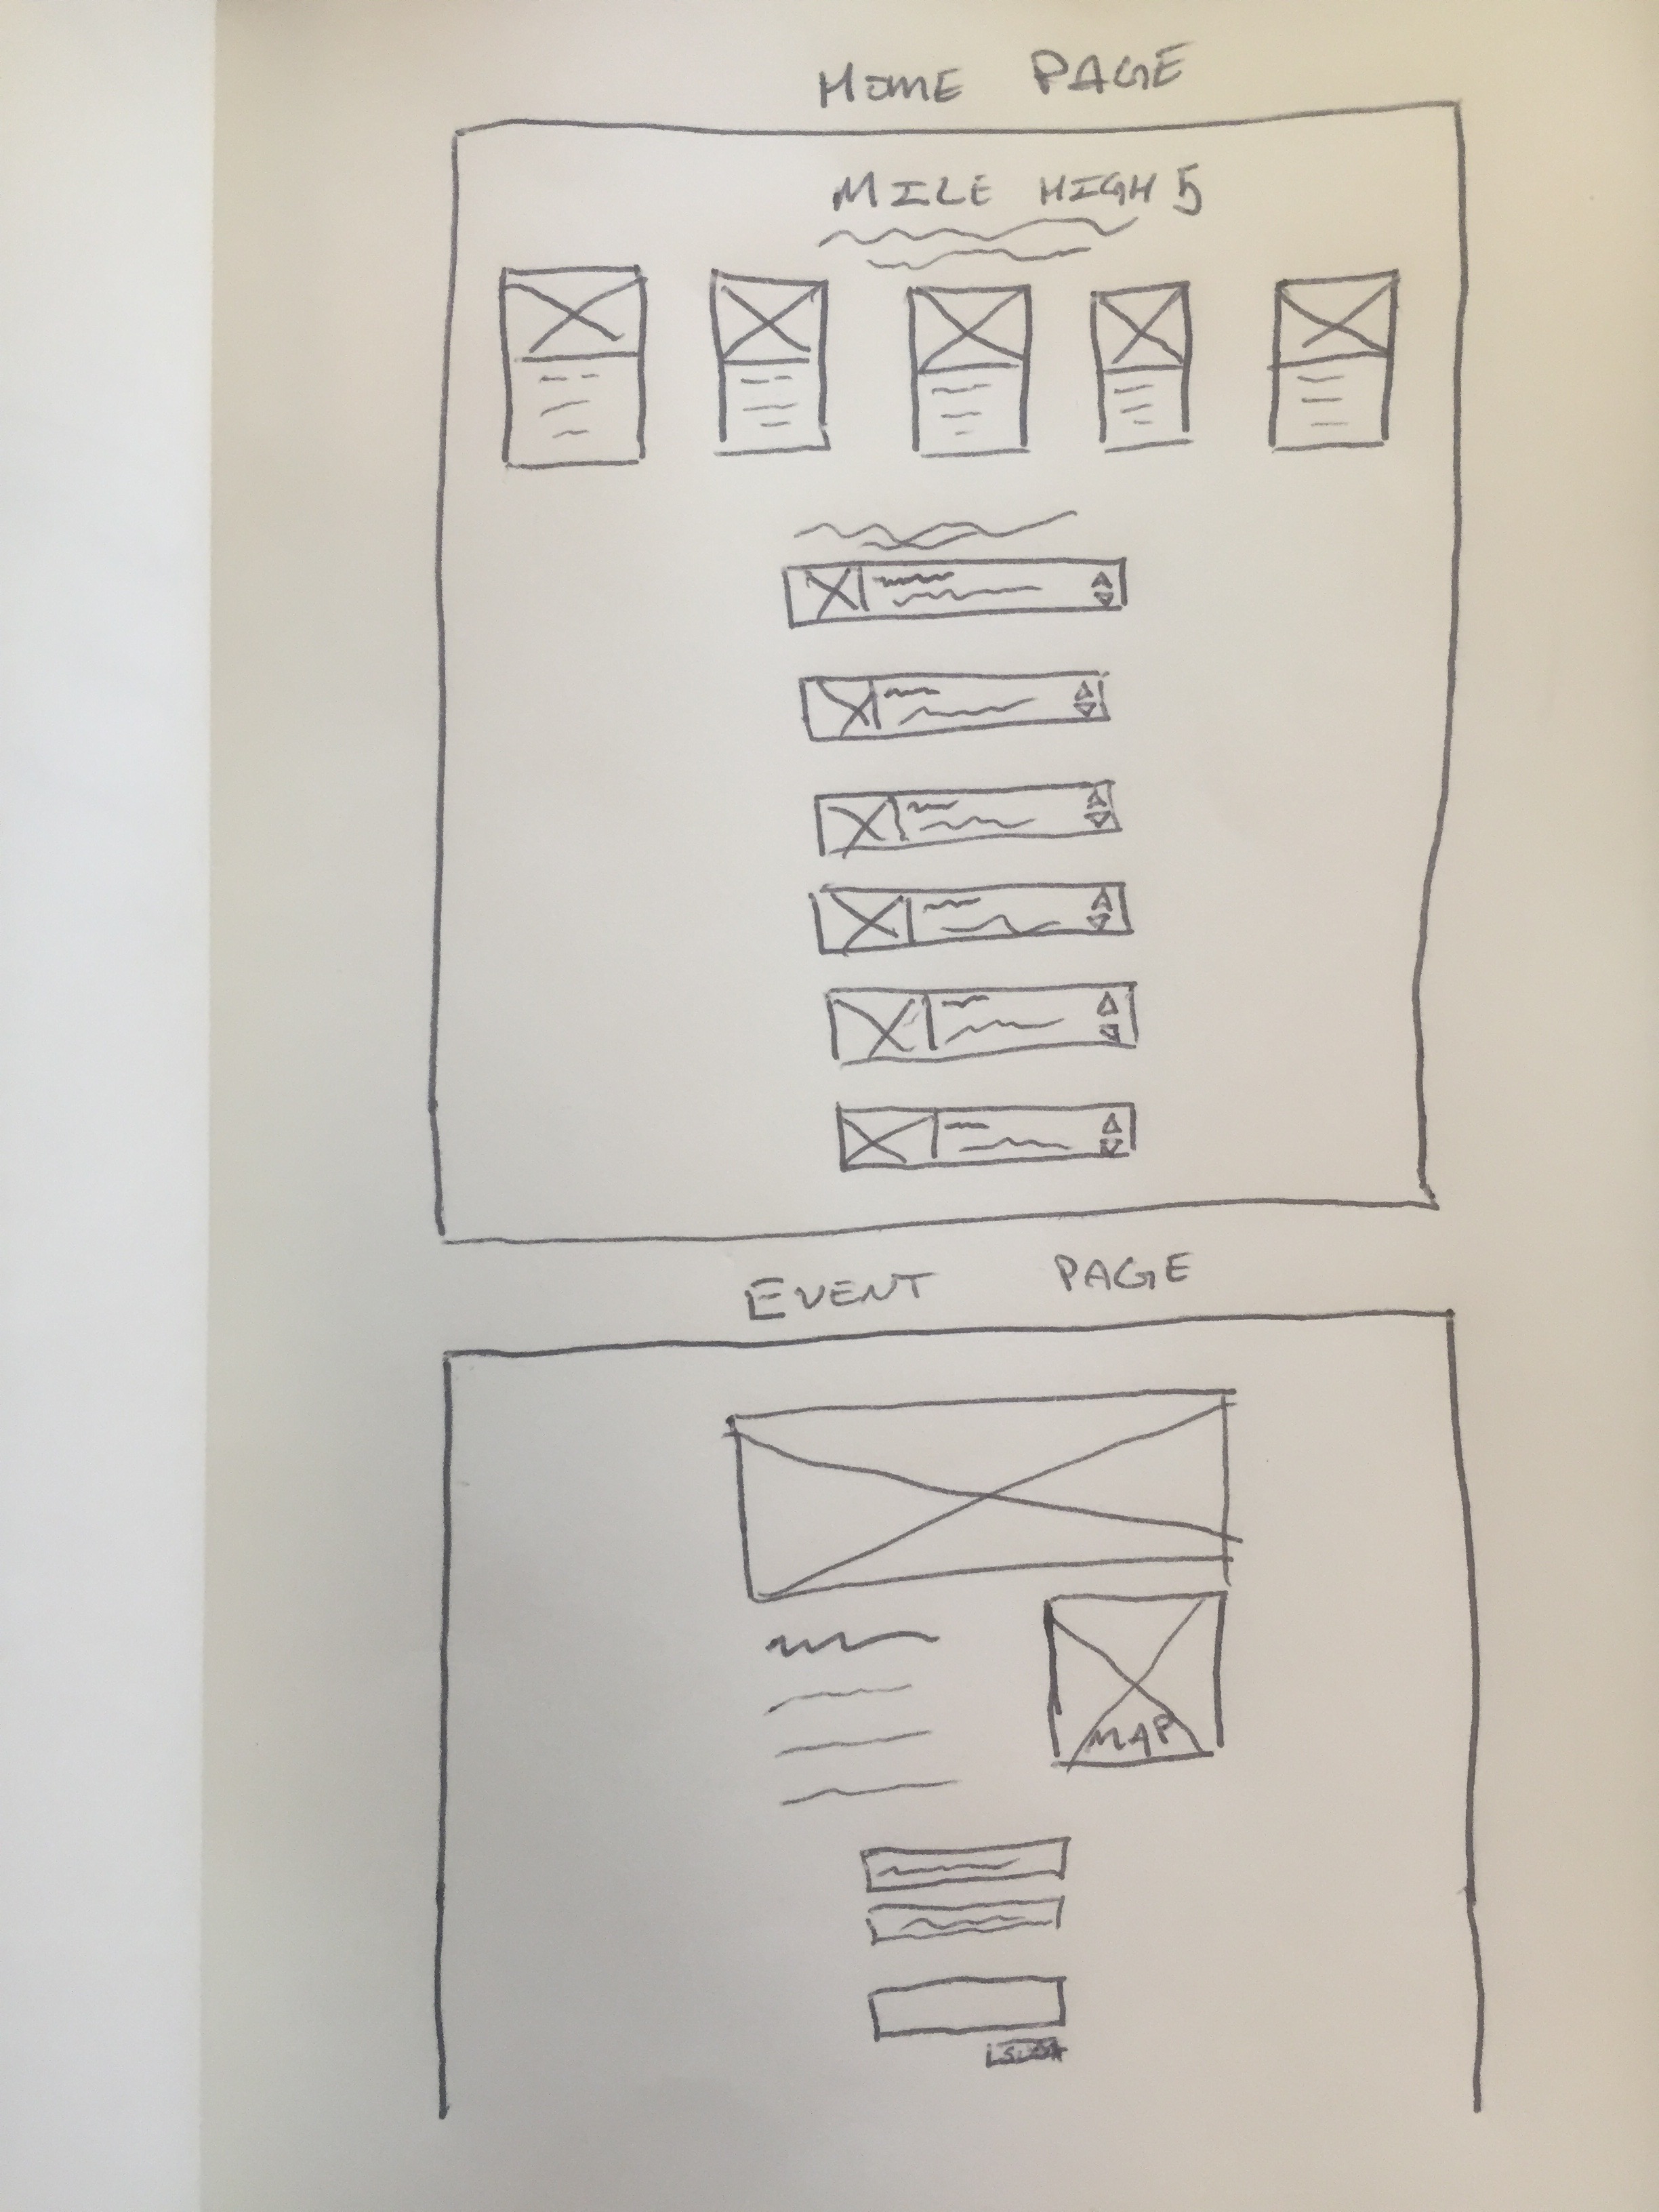 HOME PAGE
MILE HIGH 5
EVENT PAGE
MAP